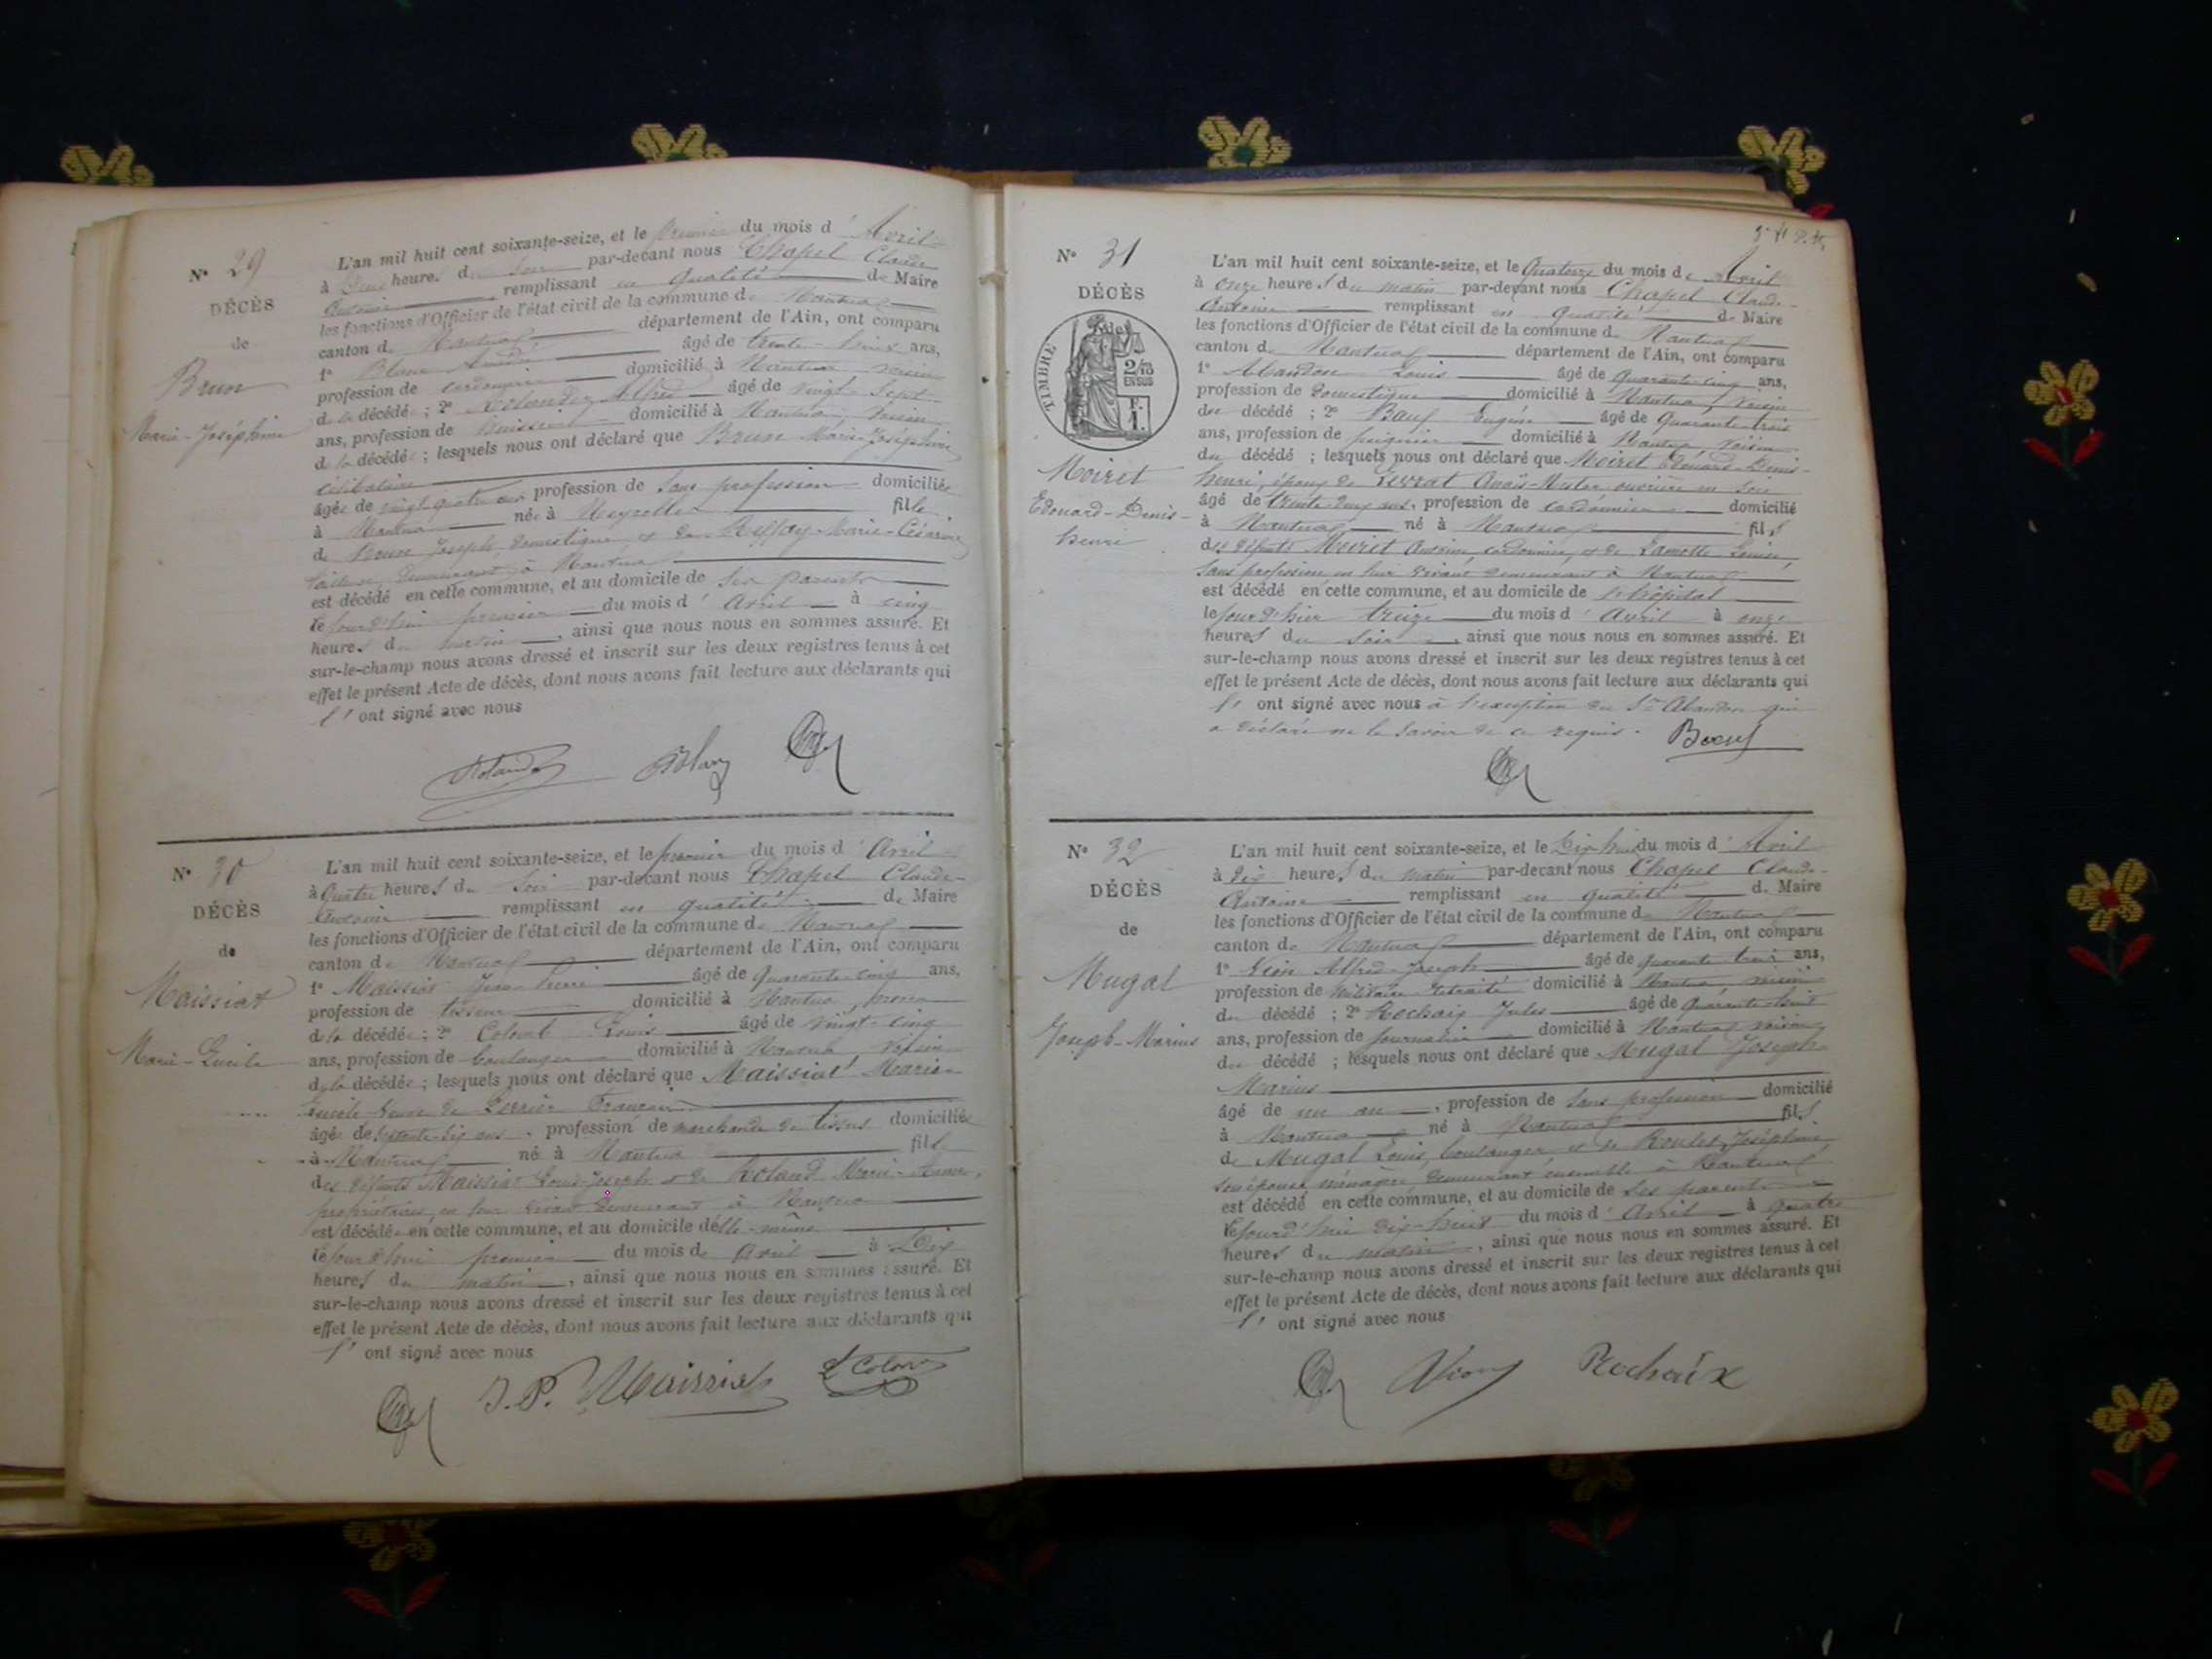 N° 29
DÉCÈS
de
Brun
Marie-Joséphine
L'an mil huit cent soixante-seize, et le premier du mois d' Avril
à heures d soir par-devant nous Chapel Claude
Antoine remplissant en qualité de Maire
les fonctions d'Officier de l'état civil de la commune de Nantua
canton de Nantua département de l'Ain, ont comparu
1° Blanc André âgé de trente-huit ans,
profession de cordonnier domicilié à Nantua voisin
de la décédée ; 2° Alfred âgé de vingt-sept
ans, profession de domicilié à Nantua, voisin
de la décédée ; lesquels nous ont déclaré que Brun Marie-Joséphine
célibataire
âgée de vingt-quatre ans profession de sans profession domiciliée
à Nantua née à fille
de Brun Joseph, domestique et de Marie-Césarine
demeurant à Nantua
est décédé en cette commune, et au domicile de ses parents
le jourd'hui premier du mois d' Avril à cinq
heures du matin, ainsi que nous nous en sommes assuré. Et
sur-le-champ nous avons dressé et inscrit sur les deux registres tenus à cet
effet le présent Acte de décès, dont nous avons fait lecture aux déclarants qui
l' ont signé avec nous
N° 30
DÉCÈS
de
Maissiat
Marie-Lucile
L'an mil huit cent soixante-seize, et le premier du mois d' Avril
à quatre heures du soir par-devant nous Chapel Claude-
Antoine remplissant en qualité de Maire
les fonctions d'Officier de l'état civil de la commune de Nantua
canton de Nantua département de l'Ain, ont comparu
1° Maissiat Jean âgé de quarante-cinq ans,
profession de tisseur domicilié à Nantua,
de la décédée ; 2° Colomb Louis âgé de vingt-cinq
ans, profession de boulanger domicilié à Nantua, voisin
de la décédée ; lesquels nous ont déclaré que Maissiat Marie-
Lucile veuve de François
âgée de septante-dix ans, profession de marchande de tissus domiciliée
à Nantua né à Nantua fille
des défunts Maissiat Louis-Joseph et de Roland Marie-
propriétaires, en leur vivant demeurant à Nantua
est décédée en cette commune, et au domicile d'elle-même
le jourd'hui premier du mois de Avril à Dix
heures du matin, ainsi que nous nous en sommes assuré. Et
sur-le-champ nous avons dressé et inscrit sur les deux registres tenus à cet
effet le présent Acte de décès, dont nous avons fait lecture aux déclarants qui
l' ont signé avec nous
J. P. Maissiat L Colomb
N° 31
DÉCÈS
TIMBRE
2/10
EN SUS
Moiret
Edouard-Denis-
henri
L'an mil huit cent soixante-seize, et le Quatorze du mois de Avril
à onze heures du matin par-devant nous Chapel Claude-
Antoine remplissant en qualité de Maire
les fonctions d'Officier de l'état civil de la commune de Nantua
canton de Nantua département de l'Ain, ont comparu
1° Abandon Louis âgé de quarante-cinq ans,
profession de domestique domicilié à Nantua, voisin
du décédé ; 2° Bœuf Eugène âgé de quarante-trois
ans, profession de peignier domicilié à Nantua, voisin
du décédé ; lesquels nous ont déclaré que Moiret Edouard-Denis-
henri, époux de Levrat ouvrière en soie
âgé de trente-deux ans, profession de cordonnier domicilié
à Nantua né à Nantua fils
des défunts Moiret Antoine, cordonnier, et de Lamotte Louise,
sans profession en leur vivant demeurant à Nantua
est décédé en cette commune, et au domicile de l'hôpital
le jour d'hier treize du mois d' Avril à onze
heures du soir, ainsi que nous nous en sommes assuré. Et
sur-le-champ nous avons dressé et inscrit sur les deux registres tenus à cet
effet le présent Acte de décès, dont nous avons fait lecture aux déclarants qui
l' ont signé avec nous à l'exception du Sr Abandon qui
a déclaré ne le savoir de ce requis. Bœuf
N° 32
DÉCÈS
de
Mugal
Joseph-Marius
L'an mil huit cent soixante-seize, et le Dix huit du mois d' Avril
à dix heures du matin par-devant nous Chapel Claude-
Antoine remplissant en qualité de Maire
les fonctions d'Officier de l'état civil de la commune de Nantua
canton de Nantua département de l'Ain, ont comparu
1° Alfred-Joseph âgé de quarante trois ans,
profession de militaire retraité domicilié à Nantua, voisin
du décédé ; 2° Rochaix Jules âgé de quarante-huit
ans, profession de journalier domicilié à Nantua, voisin
du décédé ; lesquels nous ont déclaré que Mugal Joseph-
Marius
âgé de un an, profession de sans profession domicilié
à Nantua né à Nantua fils
de Mugal Louis, boulanger et de Joséphine
son épouse, ménagère demeurant ensemble à Nantua
est décédé en cette commune, et au domicile de ses parents
le jourd'hui dix-huit du mois d' Avril à quatre
heures du matin, ainsi que nous nous en sommes assuré. Et
sur-le-champ nous avons dressé et inscrit sur les deux registres tenus à cet
effet le présent Acte de décès, dont nous avons fait lecture aux déclarants qui
l' ont signé avec nous
Rochaix